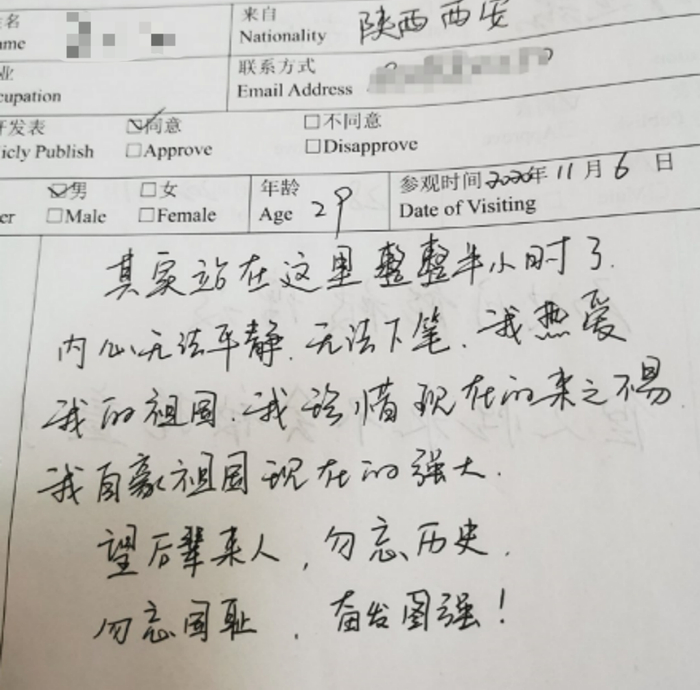 名 来自 陕西西安
ame Nationality
业 联系方式
cupation Email Address
开发表 ☑同意 □不同意
icly Publish □Approve □Disapprove
☑男 □女 年龄 29 参观时间 2020年 11 月 6 日
er □Male □Female Age Date of Visiting
其实站在这里整整半小时了.
内心无法平静.无法下笔.我热爱
我的祖国.我珍惜现在的来之不易
我自豪祖国现在的强大.
望后辈来人,勿忘历史.
勿忘国耻,奋发图强!